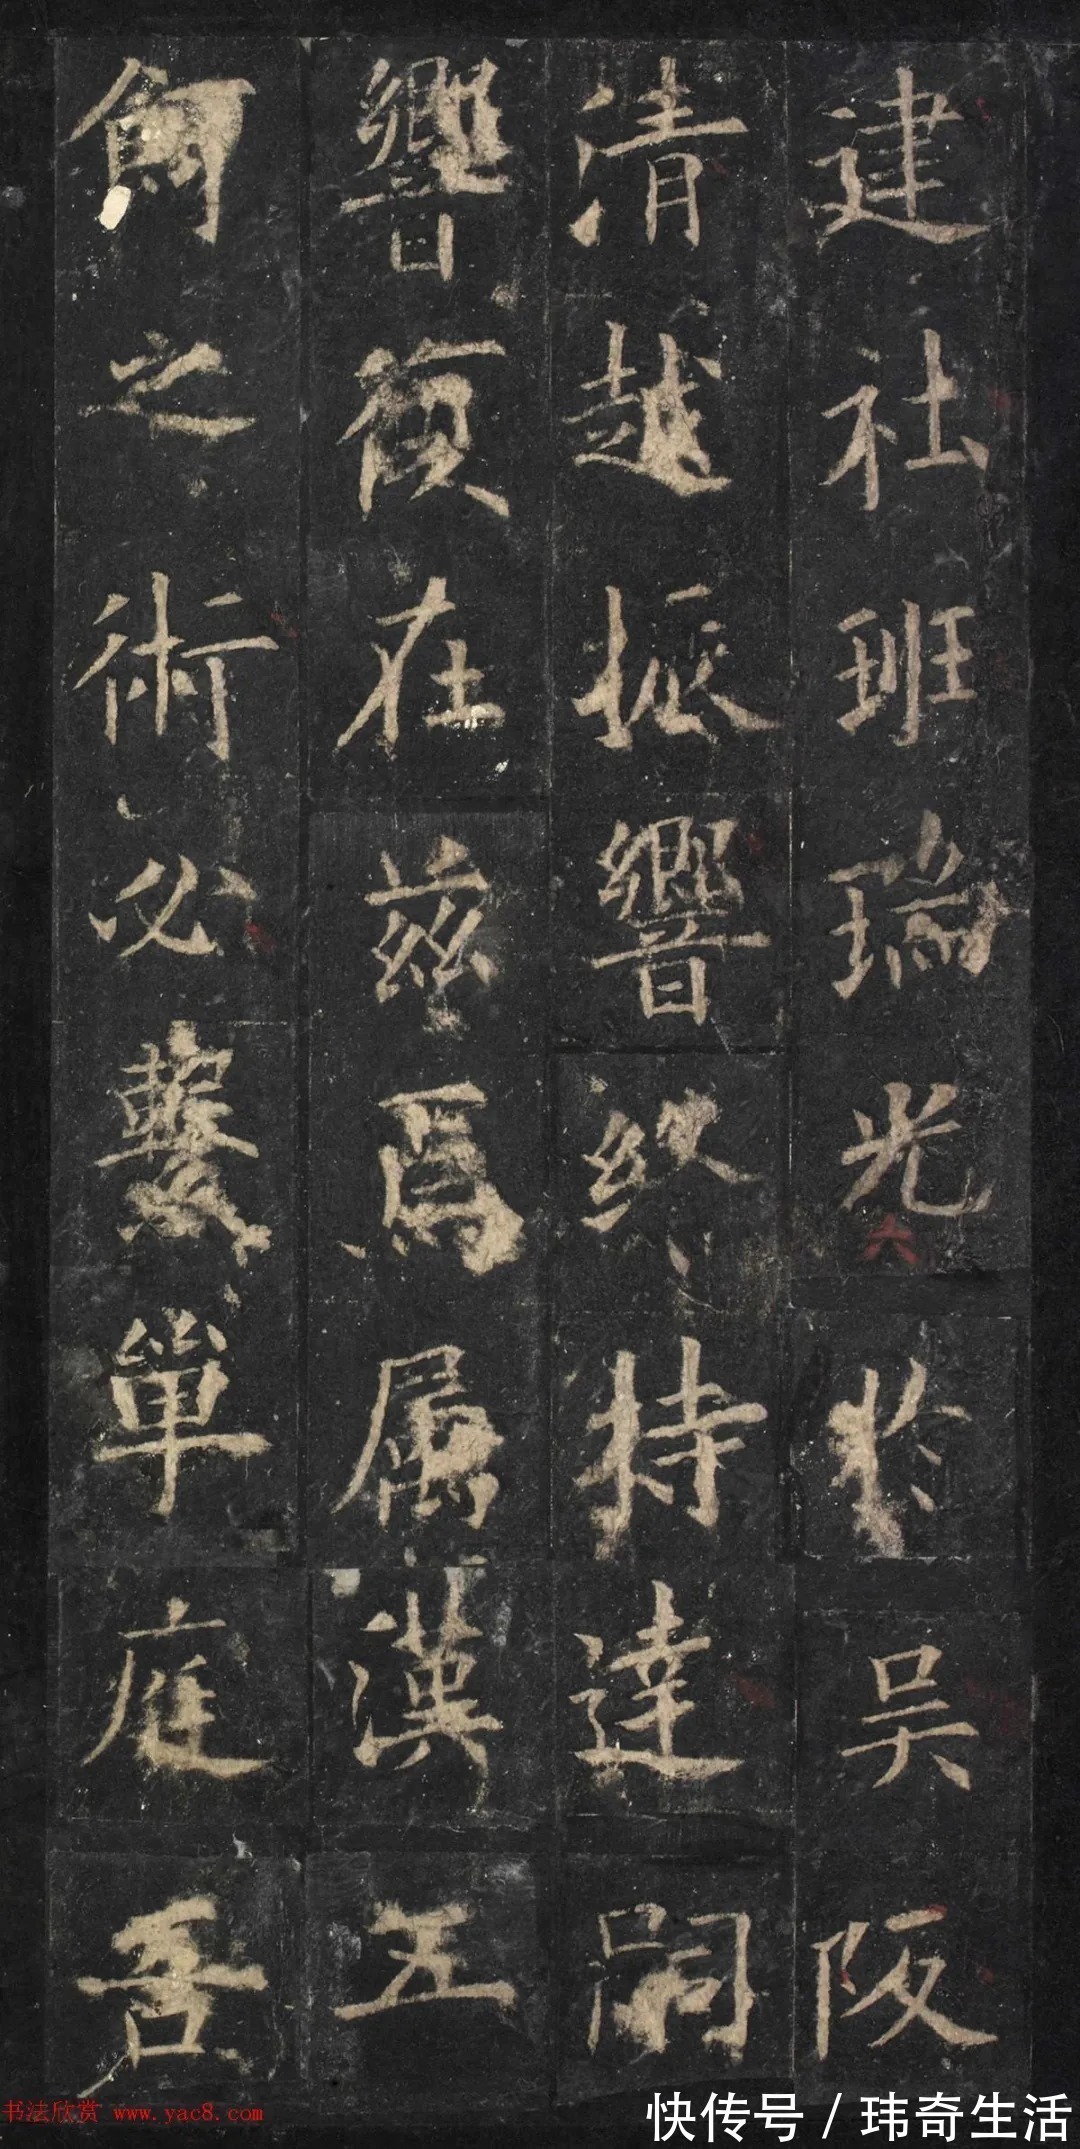 建社班瑞光於吴阪
清越振響終持達嗣
響復在茲爲属漢王
飾之術必藝單庭吾
六
书法欣赏 www.yac8.com
快传号 / 玮奇生活